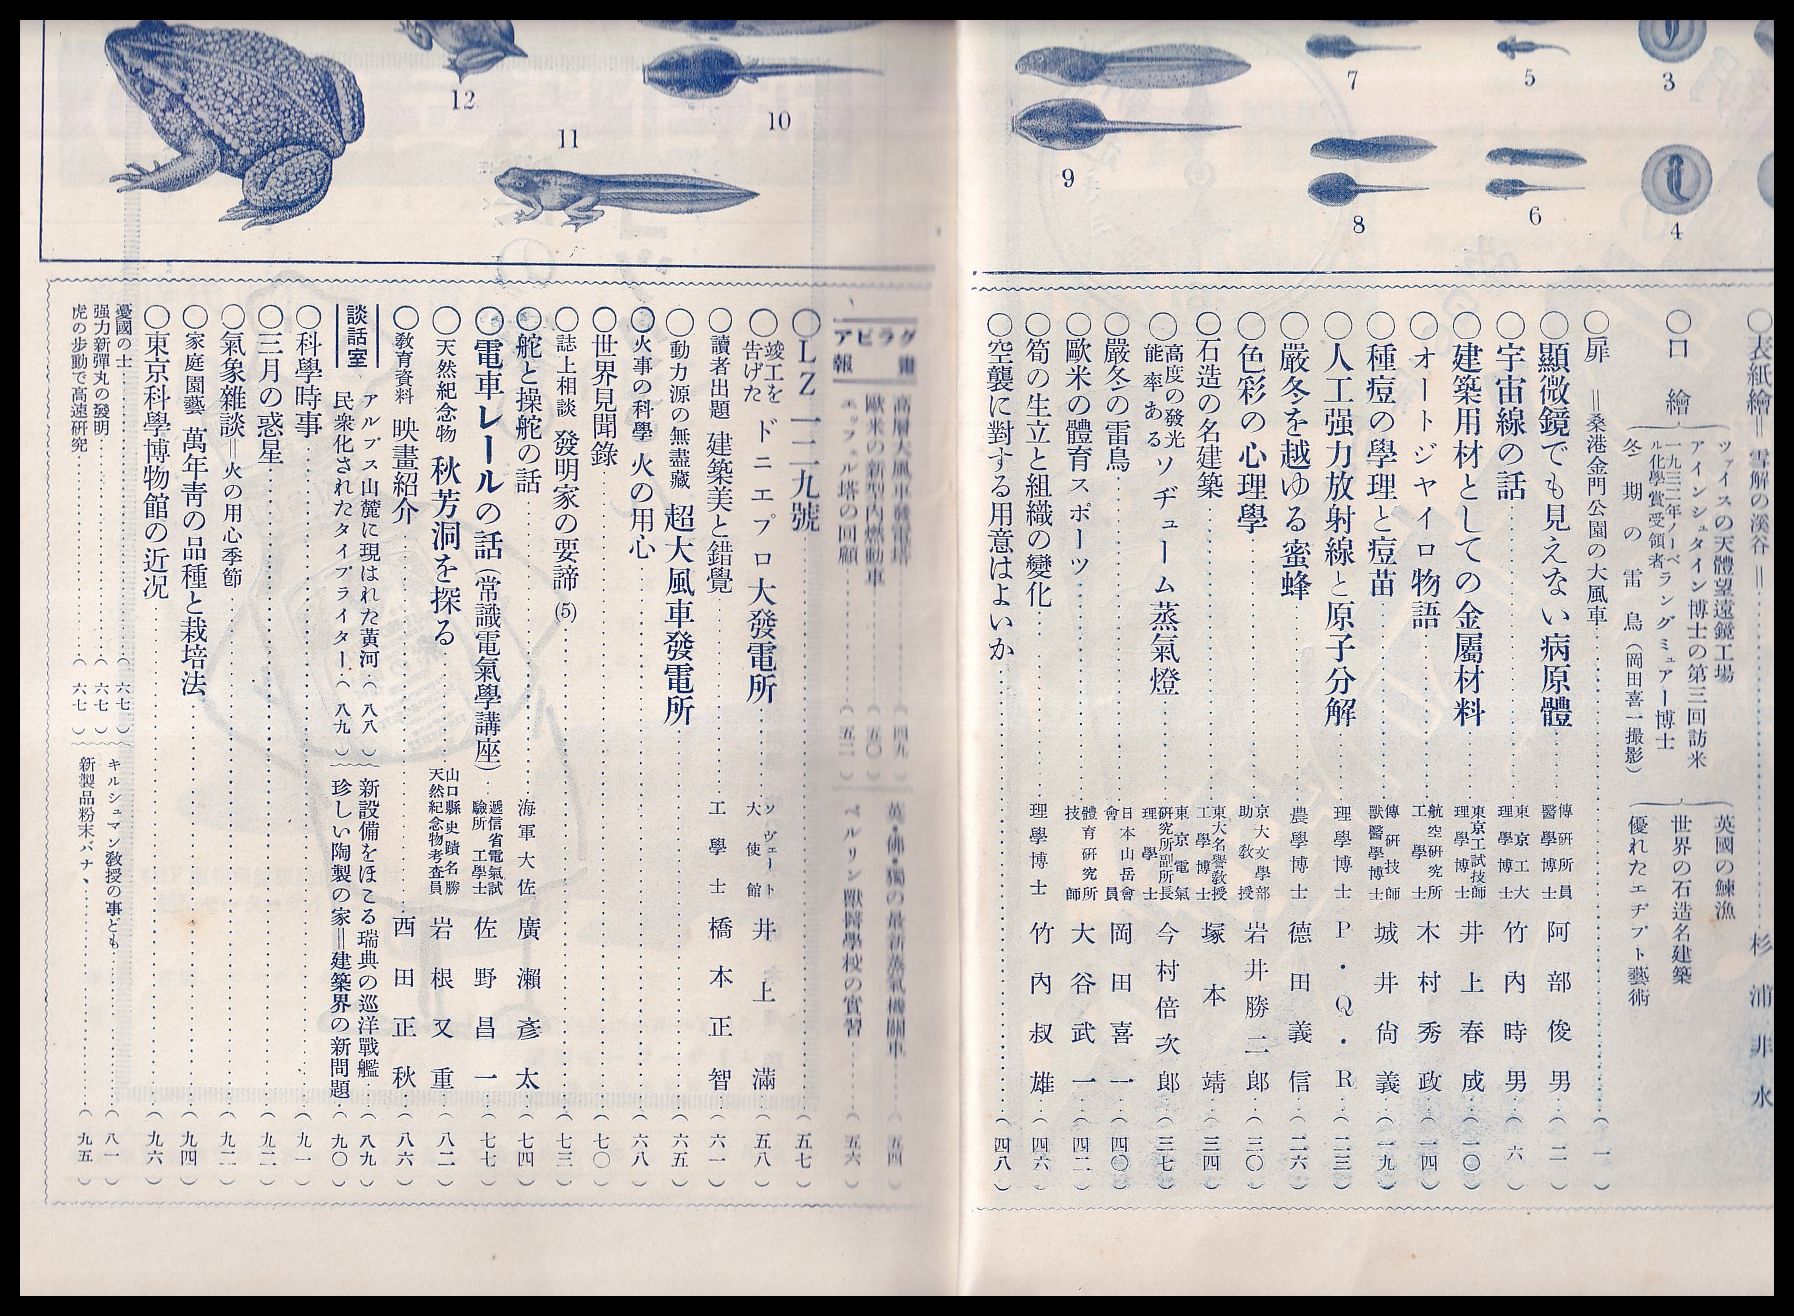 3
5
7
4
6
8
9
10
11
12
◯表紙繪＝雪解の溪谷＝…………杉浦非水
◯口繪
ツァイスの天體望遠鏡工場
アインシュタイン博士の第三回訪米
一九三二年ノーベル化學賞受領者ラングミュアー博士
冬期の雷鳥（岡田喜一撮影）
英國の鰊漁
世界の石造名建築
優れたエヂプト藝術
◯扉＝桑港金門公園の大風車…………（一）
◯顯微鏡でも見えない病原體…………傳硏所員醫學博士 阿部俊男…（二）
◯宇宙線の話…………東京工大理學博士 竹內時男…（六）
◯建築用材としての金屬材料…………東京工試技師理學博士 井上春成…（一〇）
◯オートジヤイロ物語…………航空硏究所工學士 木村秀政…（一四）
◯種痘の學理と痘苗…………傳硏技師獸醫學博士 城井尙義…（一九）
◯人工强力放射線と原子分解…………理學博士 P・Q・R…（二三）
◯嚴冬を越ゆる蜜蜂…………農學博士 德田義信…（二六）
◯色彩の心理學…………京大文學部助敎授 岩井勝二郎…（三〇）
◯石造の名建築…………東大名譽敎授工學博士 塚本靖…（三四）
◯高度の發光能率あるソヂューム蒸氣燈…………東京電氣硏究所副所長理學士 今村倍次郎…（三七）
◯嚴冬の雷鳥…………日本山岳會會員 岡田喜一…（四〇）
◯歐米の體育スポーツ…………體育硏究所技師 大谷武一…（四二）
◯筍の生立と組織の變化…………理學博士 竹內叔雄…（四六）
◯空襲に對する用意はよいか…………（四八）
グラビア畫報
高層大風車發電塔…………（四九）
歐米の新型內燃動車…………（五〇）
エッフェル塔の回顧…………（五二）
英・佛・獨の最新蒸氣機關車…………（五四）
ベルリン獸醫學校の實習…………（五六）
◯LZ一二九號…………（五七）
◯竣工を告げたドニエプロ大發電所…………ソヴェート大使館 井上滿…（五八）
◯讀者出題 建築美と錯覺…………工學士 橋本正智…（六一）
◯動力源の無盡藏 超大風車發電所…………（六五）
◯火事の科學 火の用心…………（六八）
◯世界見聞錄…………（七〇）
◯誌上相談 發明家の要諦(5)…………（七三）
◯舵と操舵の話…………海軍大佐 廣瀨彥太…（七四）
◯電車レールの話（常識電氣學講座）…遞信省電氣試驗所 工學士 佐野昌一…（七七）
◯天然紀念物 秋芳洞を探る…………山口縣史蹟名勝天然紀念物考査員 岩根又重…（八二）
◯敎育資料 映畫紹介…………西田正秋…（八六）
談話室
アルプス山麓に現はれた黃河…（八八）
民衆化されたタイプライター…（八九）
新設備をほこる瑞典の巡洋戰艦…（八九）
珍しい陶製の家＝建築界の新問題…（九〇）
◯科學時事…………（九一）
◯三月の惑星…………（九二）
◯氣象雜談＝火の用心季節…………（九二）
◯家庭園藝 萬年靑の品種と栽培法…………（九四）
◯東京科學博物館の近况…………（九六）
憂國の士…………（六七）
强力新彈丸の發明…………（六七）
虎の步動で高速硏究…………（六七）
キルシュマン敎授の事ども…………（八一）
新製品粉末バナナ…………（九五）